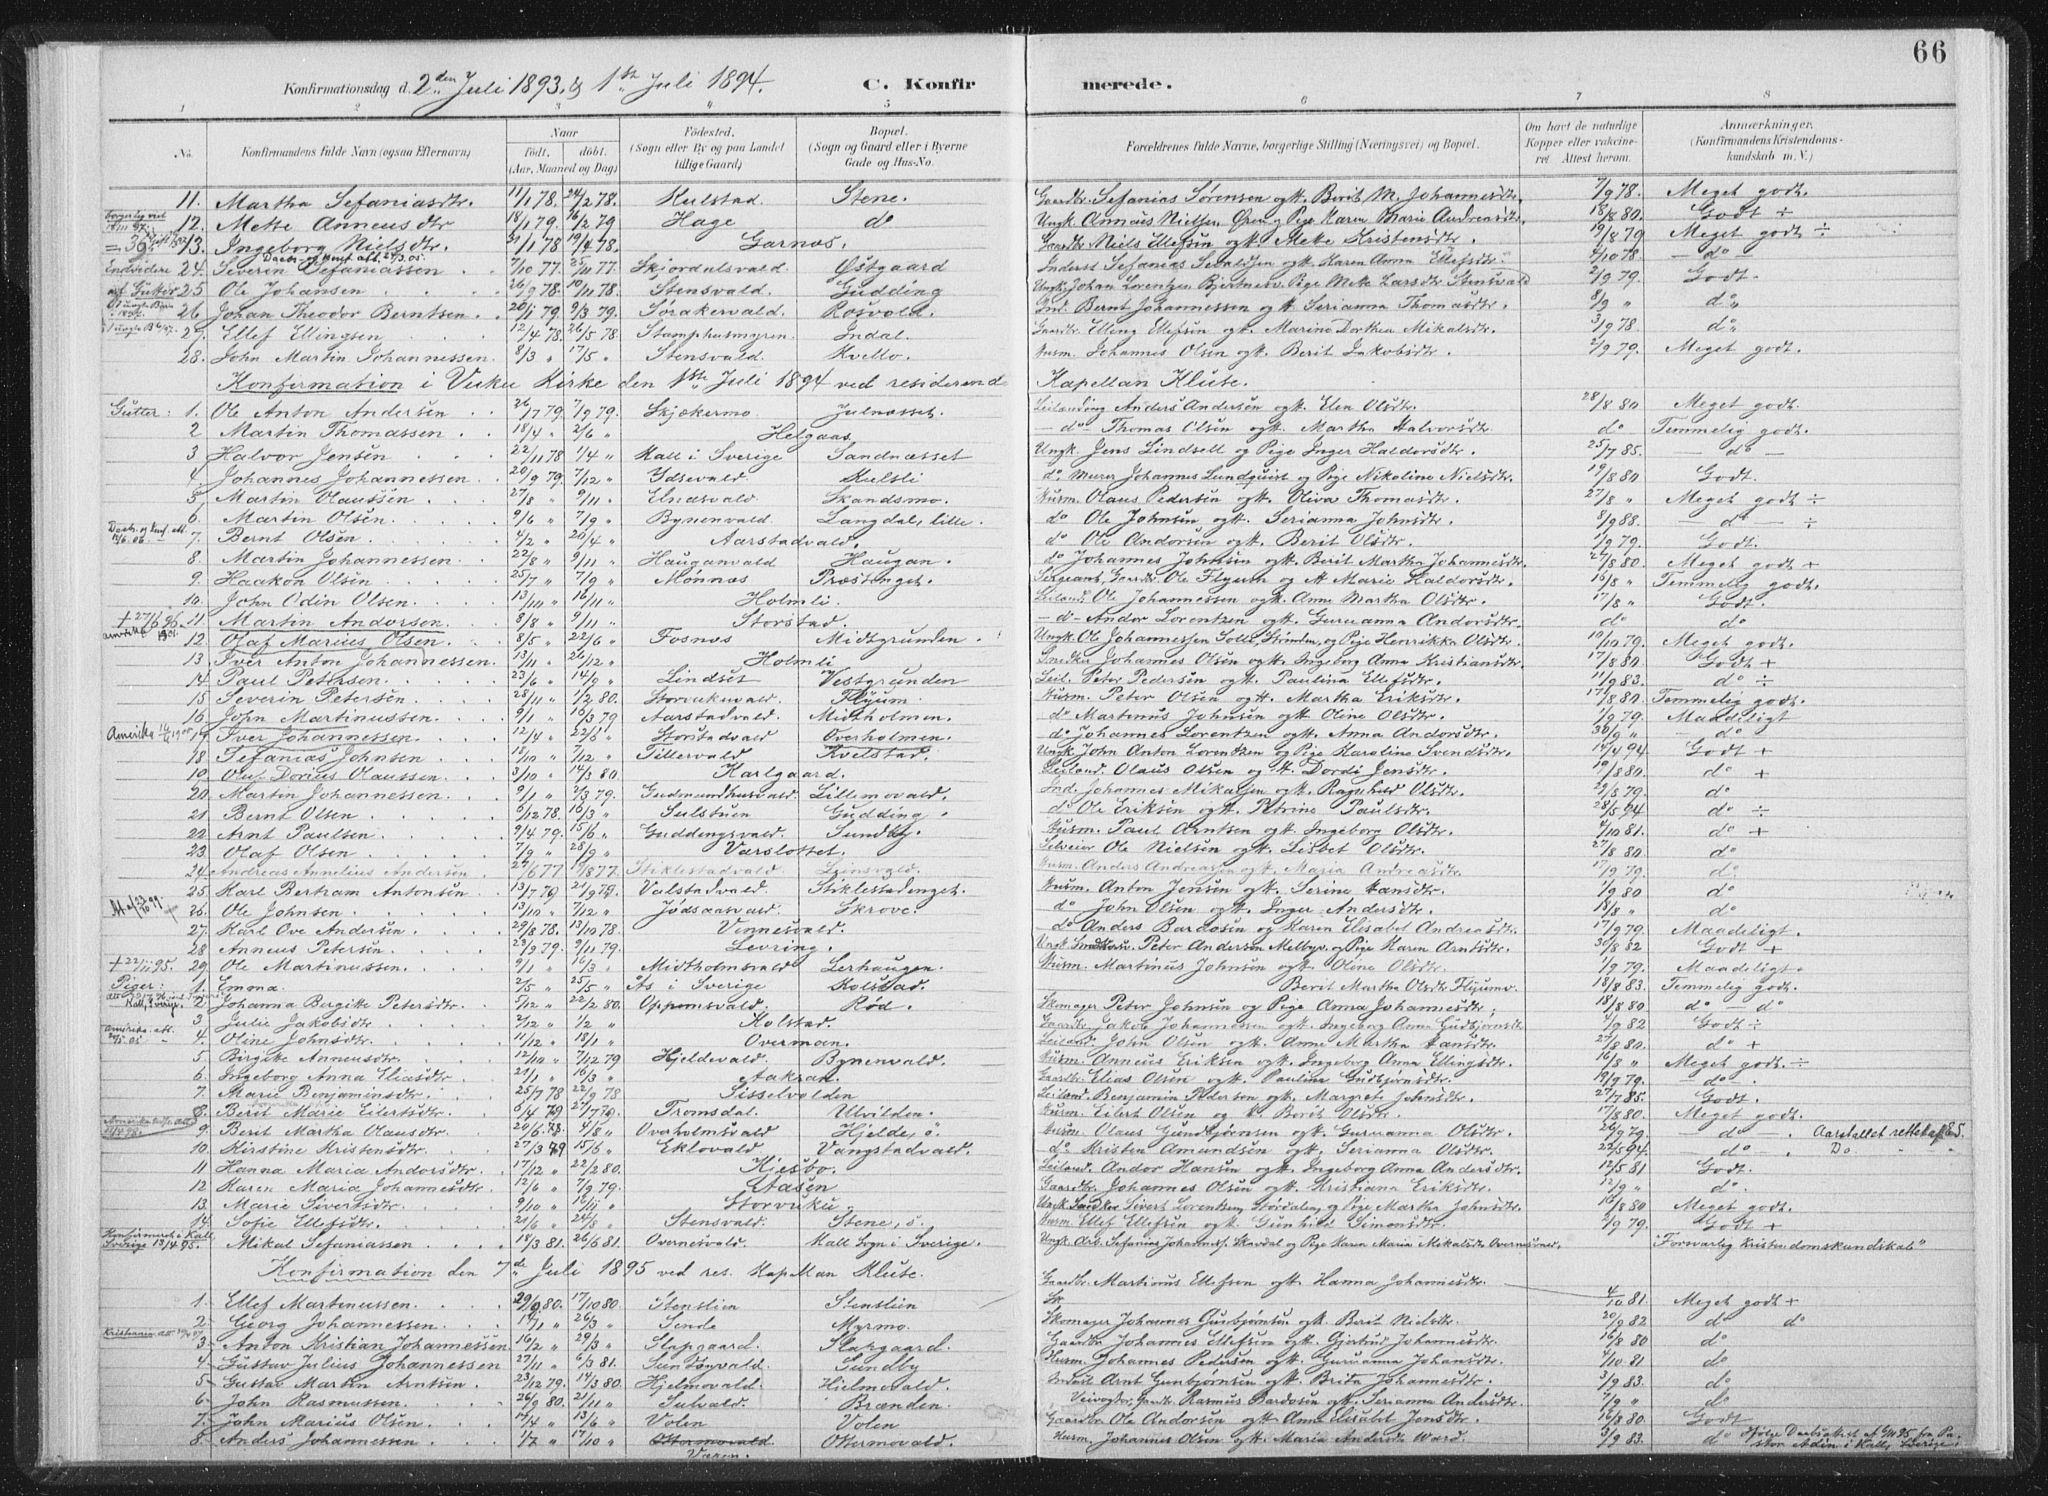 66
Konfirmationsdag d. 2den Juli 1893 & 1ste Juli 1894. C. Konfir merede.
1 2 3 4 5 6 7 8
No. Konfirmandens fulde Navn (ogsaa Efternavn) Naar født. døbt. (Aar, Maaned og Dag) Fødested. (Sogn eller By og paa Landet tillige Gaard) Bopæl. (Sogn og Gaard eller i Byerne Gade og Hus-No. Forældrenes fulde Navne, borgerlige Stilling (Næringsvei) og Bopæl. Om havt de naturlige Kopper eller vakcineret. Attest herom. Anmærkninger. (Konfirmandens Kristendomskundskab m. V.)
11. Martha Sefaniasdtr. 11/1 78. 24/2 78. Kulstad. Stene. Gaardbr. Sefanias Sørensen og H. Berit M. Johannesdtr. 7/9 78. Meget godt.
12. Mette Anneusdtr 18/1 79. 16/2 79 Hage do Ungk. Anneus Nielsen Øren og Pige Karen Marie Andreasdtr. 18/8 80. Godt ÷
13. Ingeborg Nielsdtr. 31/1 78 19/4 78. Garnæs. Gaardbr. Niels Ellefsen og H. Mette Kristensdtr. 19/8 79 Meget godt ÷
24. Severin Sefaniassen 7/10 77. 25/11 77. Skjordalsvald. Østgaard Inderst Sefanias Sevaldsen og H. Karen Anna Ellefsdtr. 4/10 78. — do —
25 Ole Johansen 26/9 78. 10/11 78. Stensvald. Gudding Ungk. Johan Lorentzen Bjertnes og Pige Mette Larsdtr Stensvald 2/9 79. Godt.
26 Johan Theodor Berntsen 20/1 79. 9/3 79. Sørakervald. Rosvold. Ind. Bernt Johannessen og H. Serianna Thomasdtr. 8/9 " do
27. Ellef Ellingsen 12/4 78. 26/5 78. Stamphusmyren. Indal. Gaardbr. Elling Ellefsen og H. Marino Dorthea Mikalsdtr. 3/9 78. do
28. John Martin Johannessen. 8/3 " 17/5 " Stensvald. Kvello. Husm. Johannes Olsen og H. Berit Jakobsdtr. 2/9 79. Meget godt.
Konfirmation i Vuku Kirke den 1ste Juli 1894 ved residerende Kapellan Klute.
Gutter: 1. Ole Anton Andersen 26/7 79. 7/9 79. Skjækermo. Julnæsset. Leilænding Anders Andersen og H. Elen Olsdtr. 28/8 80 Meget godt.
2 Martin Thomassen 18/4 " 2/6 " Helgaas. — do — Thomas Olsen og H. Martha Halvorsdtr. do Temmelig godt.
3 Halvor Jensen 22/11 78 1/4 " Kall i Sverige Sandnæsset Ungk. Jens Lindsell og Pige Inger Haldorsdtr. 25/7 85. — do —
4 Johannes Johannessen 20/9 79. 7/12 " Ydsevald. Kulsli do Murer Johannes Lundquist og Pige Nikoline Nielsdtr. 19/8 80 Godt.
5 Martin Olaussen 27/8 " 9/11 " Elnesvald. Skandsmo. Husm. Olaus Pedersen og H. Oliva Thomasdtr. 27/8 " Meget godt ÷
6. Martin Olsen. 9/6 " 7/9 " Bynenvald. Langdal, lille. do Ole Johnsen og H. Serianna Johnsdtr. 8/9 88. — do — ÷
7. Bernt Olsen 4/2 " 20/4 " Aarstadvald. do Ole Andorsen og H. Berit Olsdtr. 1/9 79. Godt.
8. Martin Johannessen 22/8 " 9/11 " Hauganvald Haugan. do Johannes Johnsen og H. Berit Martha Johannesdtr. 27/8 80 Meget godt +
9. Haakon Olsen 25/7 " 7/9 " Mønnes Præstenget. Sergeant, Gaardbr. Ole Flyum og H Marie Haldorsdtr. 16/8 " Temmelig godt.
10. John Odin Olsen. 13/10 " 16/11 " Holmli. Leilænd. Ole Johannessen og H. Anne Martha Olsdtr. 17/8 " Godt.
+ 27/6 96. 11 Martin Andorsen. 8/8 " 9/11 " Storstad. — d — Andor Lorentzen og H. Guruanna Andorsdtr. do do
12. Olaf Marius Olsen. 8/5 " 22/6 " Fosnæs Midtgrunden. Ungk. Ole Johannessen Solli, Strinden, og Pige Henrikka Olsdtr. 10/10 79. Meget godt.
13. Iver Anton Johannessen. 13/11 " 26/12 " Holmli Snedker Johannes Olsen og H. Ingeborg Anna Kristiansdtr. 17/8 80. Godt +
14. Paul Petersen. 23/6 " 14/9 " Lindset Vestgrunden Leil. Peter Pedersen og H. Paulina Ellefsdtr. 11/9 83. do ÷
15 Severin Petersen. 28/11 " 1/2 80. Storvukuvald. Flyum Husm. Peter Olsen og H. Martha Eriksdtr. 17/8 80. Temmelig godt.
16. John Martinussen. 9/1 " 16/3 79 Aarstadvald. Midtholmen. do Martinus Johnsen og H. Oline Olsdtr. 1/9 79. Maadeligt
17. Iver Johannessen. 12/4 " 22/6 " Storstadvald Overholmen. do Johannes Lorentzen og H. Anna Andorsdtr. 30/9 " — do —
18 Sefanias Johnsen. 18/10 " 7/12 " Tillervald. Kvelstad. Ungk. John Anton Lorentzen og Pige Karoline Svendsdtr. 14/4 94. Godt +
19. Oluf Dorius Olaussen. 3/10 " 14/3 80. Karlgaard. Leilænd. Olaus Olsen og H. Dordi Jensdtr. 19/8 80. do +
20. Martin Johannessen. 9/1 " 2/3 79. Gudmundhusvald. Lillemovald. Ind. Johannes Mikalsen og H. Ragnhild Olsdtr. 22/8 79. do
21 Bernt Olsen 6/12 78. 16/3 " Sulstuen Gudding. do Ole Eriksen og H. Petrine Paulsdtr. 28/5 94 do ÷
22. Arnt Paulsen 9/4 79. 15/6 " Guddingsvald. Sundby. Husm. Paul Arntsen og H. Ingeborg Olsdtr. 4/10 81. do +
23. Olaf Olsen 7/9 " 28/9 " Varslottet. Selveier Ole Nielsen og H. Lisbet Olsdtr. 27/8 80. do
24. Andreas Annelius Andersen 27/6 77 19/8 77. Stiklestadvald. Leinsvald. Husm. Anders Andreassen og H. Maria Andreasdtr. 17/9 79. do
25. Karl Bertram Antonsen 13/7 79 21/9 79. Valstadvald. Stiklestadenget. Husm. Anton Jensen og H. Serine Hansdtr. 1/9 80 do
26. Ole Johnsen 13/10 " 7/12 " Jødsaasvald. Skrove. do John Olsen og H. Inger Andersdtr. 18/8 " do
27. Karl Ove Andersen 29/8 78. 13/10 78. Vinnesvald. do Anders Bardosen og Karen Elisabet Andreasdtr. 17/9 79. Maadeligt.
28 Anneus Petersen 23/3 79. 9/11 79. Levring. Peter Andersen Melbye og Pige Karen Arntsdtr. 30/8 82 Godt +
+ 22/11 95. 29. Ole Martinussen. 9/1 " 16/3 " Midtholmsvald Lerhaugen. Husm. Martinus Johnsen og H. Oline Olsdtr. 1/9 79. Maadeligt.
Piger: 1. Emma. 2/5 " 25/5 " Ås i Sverige Kolstad. Berit Martha Olsdtr Flyum. 18/8 83. Temmelig godt.
2. Johanna Birgitte Petersdtr. 5/12 " 22/2 80. Oppemsvald. Rød. Skomager Peter Johnsen og Pige Anna Johannesdtr. 18/8 80 do — do
3 Julie Jakobsdtr. 2/12 " 1/2 " Kolstad. Gaardbr. Jakob Johannessen og H. Ingeborg Anna Gudbjørnsdtr. 4/9 82 Godt ÷
4. Oline Johnsdtr. 11/12 " 18/1 " Overmoen. Leilænd. John Olsen og H. Anne Martha Hansdtr. 27/8 80. do +
5. Birgitte Anneusdtr. 12/10 " 7/12 79 Hjeldevald. Bynenvald. Husm. Anneus Eriksen og H. Ingeborg Anna Ellingsdtr. 16/8 " Meget godt. ÷
6. Ingeborg Anna Eliasdtr. 21/1 " 16/3 " Aakran. Gaardbr. Elias Olsen og H. Paulina Gudbjørnsdtr. 19/9 79. do
7. Marie Benjaminsdtr. 25/7 78 22/9 78 Sisselvolden Leilænd. Benjamin Pedersen og H. Margrete Johnsdtr. 27/7 85. Godt.
8. Berit Marie Eilertsdtr. 6/4 79 27/7 79. Tromsdal. Ulvilden. Husm. Eilert Olsen og H. Berit Olsdtr. 17/8 80. Meget godt.
9. Berit Martha Olausdtr. 20/6 78. 4/8 " Overholmsvald Hjelde, ö. Husm. Olaus Gundbjørnsen og H. Guruanna Olsdtr. 26/9 79 — do — Aarstallet rettet af
10. Kirstine Kristensdtr. 27/3 79 15/6 " Eklovald. Vangstadvald. do Kristen Amundsen og H. Serianna Olsdtr. 22/5 94. — do — Do
11 Hanna Maria Andorsdtr. 17/12 " 22/2 80. Kjesbo. Leilænd. Andor Hansen og H. Ingeborg Anna Andersdtr. 12/5 81 Godt.
12. Karen Maria Johannesdtr. 12/6 " 7/9 79. Aasen Gaardbr. Johannes Olsen og H. Kristiana Eriksdtr. 12/9 " do
13. Marie Sivertsdtr. 9/10 " Storvuku. Sivert Lorentsen Størdalen, og Pige Martha Johnsdtr. 16/8 80 Meget godt.
14. Sofie Ellefsdtr. 21/6 " 24/8 " Stensvald. Stene, ö. Husm. Ellef Ellefsen og H. Gunhild Simonsdtr. 2/9 79. Godt +
Konfirmeret i Kall, Sverige 13/4 95. Mikal Sefaniassen 18/3 81. 26/6 81. Overnesvald. Kall Sogn i Sverige. Ungk. Arb. Sefanias Johannes. Skavdal og Pige Karen Maria Mikalsdtr Overnesvald. "Forsvarlig Kristendomskundskab"
Konfirmation den 7de Juli 1895 ved res. Kapellan Klute.
1. Ellef Martinussen. 29/9 80. 17/10 80. Stenslien Stenslien Gaardbr. Martinus Ellefsen og H. Hanna Johannesdtr. 4/10 81. Meget godt +
2. Georg Johannessen. 14/1 " 26/3 " Sende Myrmo. Skomager Johannes Gunbjørnsen og H. Berit Nielsdtr. 20/9 82 do do
3. Anton Kristian Johannessen 16/2 " 29/3 " Slapgaard. Slapgaard. Gaardbr. Johannes Ellefsen og H. Gjertrud Johannesdtr. 16/8 80 do
4. Gustav Julius Johannessen 27/11 " 6/3 81. Sundbyvald. Sundby Husm. Johannes Pedersen og H. Guruanna Johansdtr. 4/10 81 do
5. Gustav Martin Arntsen. 23/12 79. 14/3 80 Hjelmovald. Hjelmovald. Inderst Arnt Gunbjørnsen og H. Brita Johannesdtr. 3/9 83. do
6. John Rasmussen 26/9 80. 21/11 " Sulvald. Brænden. Veivogter, Gaardbr. Rasmus Bardosen og H. Serianna Andersdtr. 7/9 " do
7. John Marius Olsen. 17/4 " 13/6 " Volen Volen Gaardbr. Ole Andorsen og H. Anne Elisabet Jensdtr. 16/8 80. Godt
8. Anders Johannessen 1/7 " 17/10 " Ottermovald. Ottermovald. Husm. Johannes Olsen og H. Maria Andersdtr Ward. 3/9 83. do
Væren.